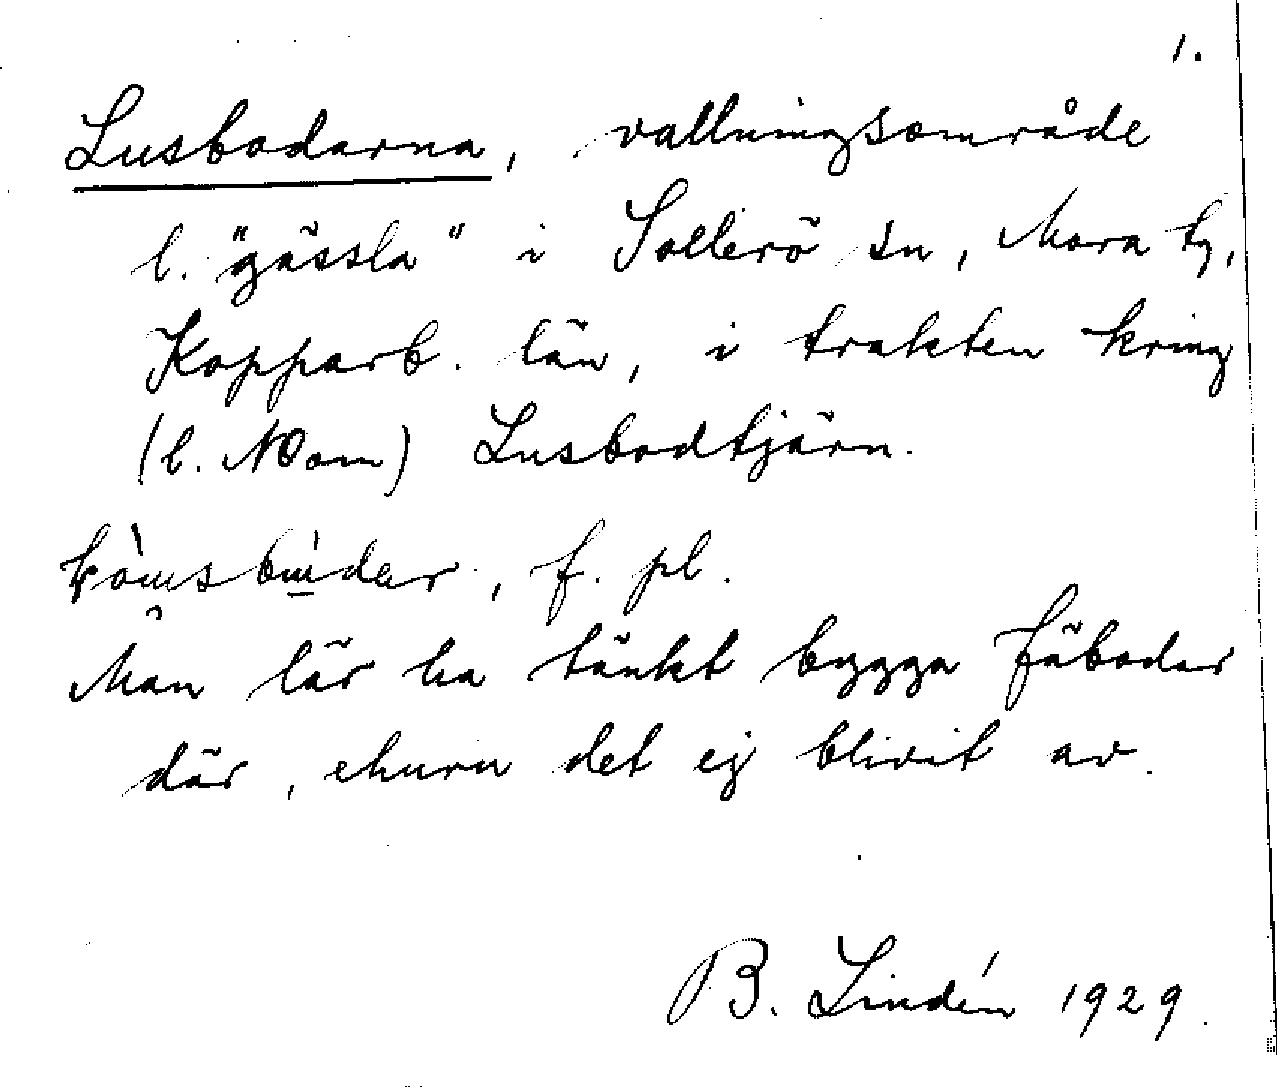 1.
Lusbodarna, vallningsområde
l. "gässla" i Sollerö sn, Mora tg,
Kopparb. län, i trakten kring
(l. NO om) Lusbodtjärn.
f. pl.
Man lär ha tänkt bygga fäbodar
där, ehuru det ej blivit av.
B. Lindén 1929.